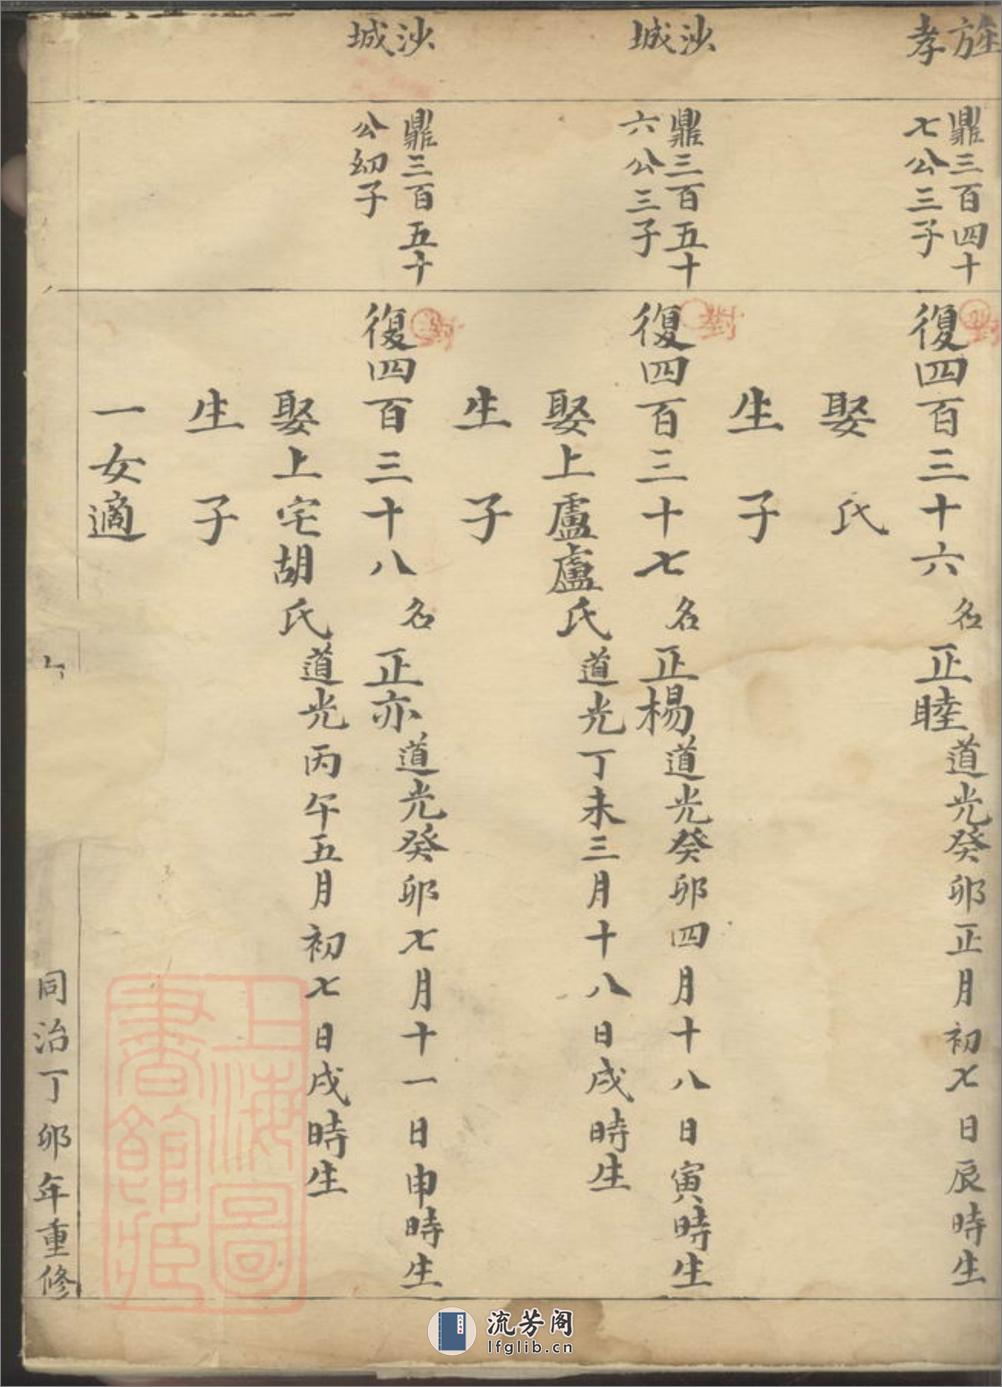 旌
孝
鼎三百四十
七公三子
復四百三十六
名
正睦
道光癸卯正月初七日辰時生
娶氏
生子
沙
城
鼎三百五十
六公三子
對
復四百三十七
名
正楊
道光癸卯四月十八日寅時生
娶上盧盧氏
道光丁未三月十八日戌時生
生子
沙
城
鼎三百五十
公幼子
對
復四百三十八
名
正亦
道光癸卯七月十一日申時生
娶上宅胡氏
道光丙午五月初七日戌時生
生子
一女適
同治丁卯年重修
上海圖
書館藏
流芳阁
lfglib.cn